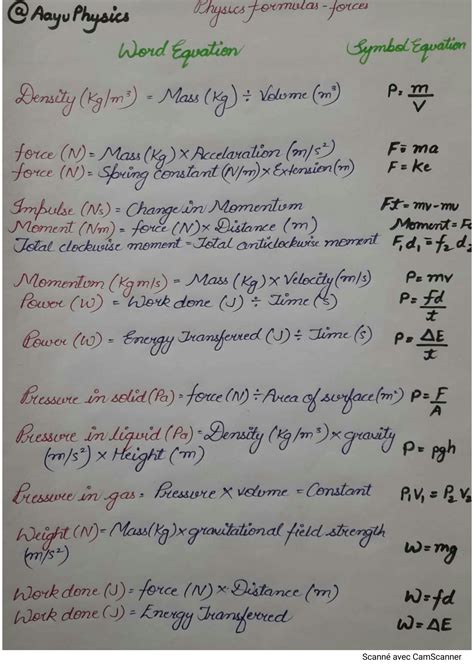 @ Aayu Physics
Physics formulas - forces
Word Equation Symbol Equation
Density (Kg/m³) = Mass (Kg) ÷ Volume (m³) P = m/V
force (N) = Mass (Kg) × Accelaration (m/s²) F = ma
force (N) = Spring constant (N/m) × Extension (m) F = ke
Impulse (Ns) = Change in Momentum Ft = mv-mu
Moment (Nm) = force (N) × Distance (m) Moment = Fd
Total clockwise moment = Total anticlockwise moment F₁d₁ = f₂d₂
Momentum (Kgm/s) = Mass (Kg) × Velocity (m/s) P = mv
Power (W) = Work done (J) ÷ Time (s) P = fd/t
Power (W) = Energy Transferred (J) ÷ Time (s) P = ΔE/t
Pressure in solid (Pa) = force (N) ÷ Area of surface (m²) P = F/A
Pressure in liquid (Pa) = Density (Kg/m³) × gravity
(m/s²) × Height (m) P = pgh
Pressure in gas = Pressure × volume = Constant P₁V₁ = P₂V₂
Weight (N) = Mass (Kg) × gravitational field strength
(m/s²) W = mg
Work done (J) = force (N) × Distance (m) W = fd
Work done (J) = Energy Transferred W = ΔE
Scanné avec CamScanner